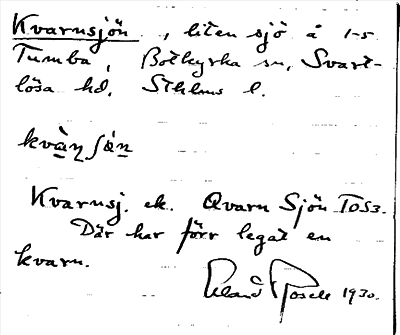 Kvarnsjön, liten sjö å 1-5
Tumba, Botkyrka sn, Svart-
lösa hd, Sthlms l.
Kvarnsj. ek. Qvarn Sjön TOS3.
Där har förr legat en
kvarn.
1930.